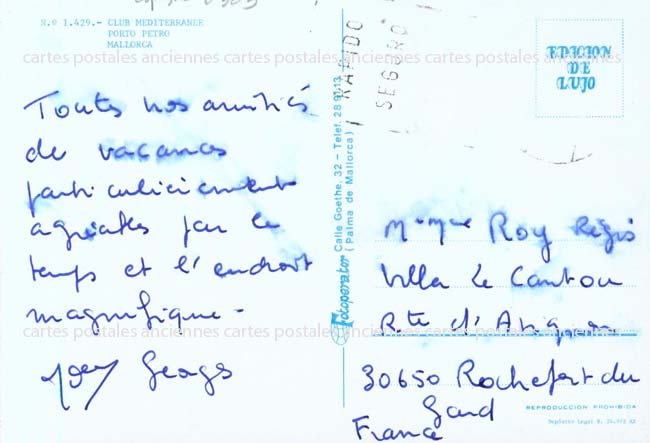 N.º 1.429.- CLUB MEDITERRANEE
PORTO PETRO
MALLORCA
cartes postales anciennes cartes postales anciennes cartes postales anciennes
Toutes nos amitiés
de vacances
particulièrement
agréables par le
temps et l'endroit
magnifique -
Georges
Fotoperator Calle Goethe, 32. - Telef. 28 90 13
(Palma de Mallorca)
RAPIDO
SEGURO
EDICION
DE
LUJO
Mr Mme Roy Régis
Villa le Cantou
Rte d'Avignon
30650 Rochefort du
Gard
France
cartes postales anciennes cartes postales anciennes cartes postales anciennes
REPRODUCCION PROHIBIDA